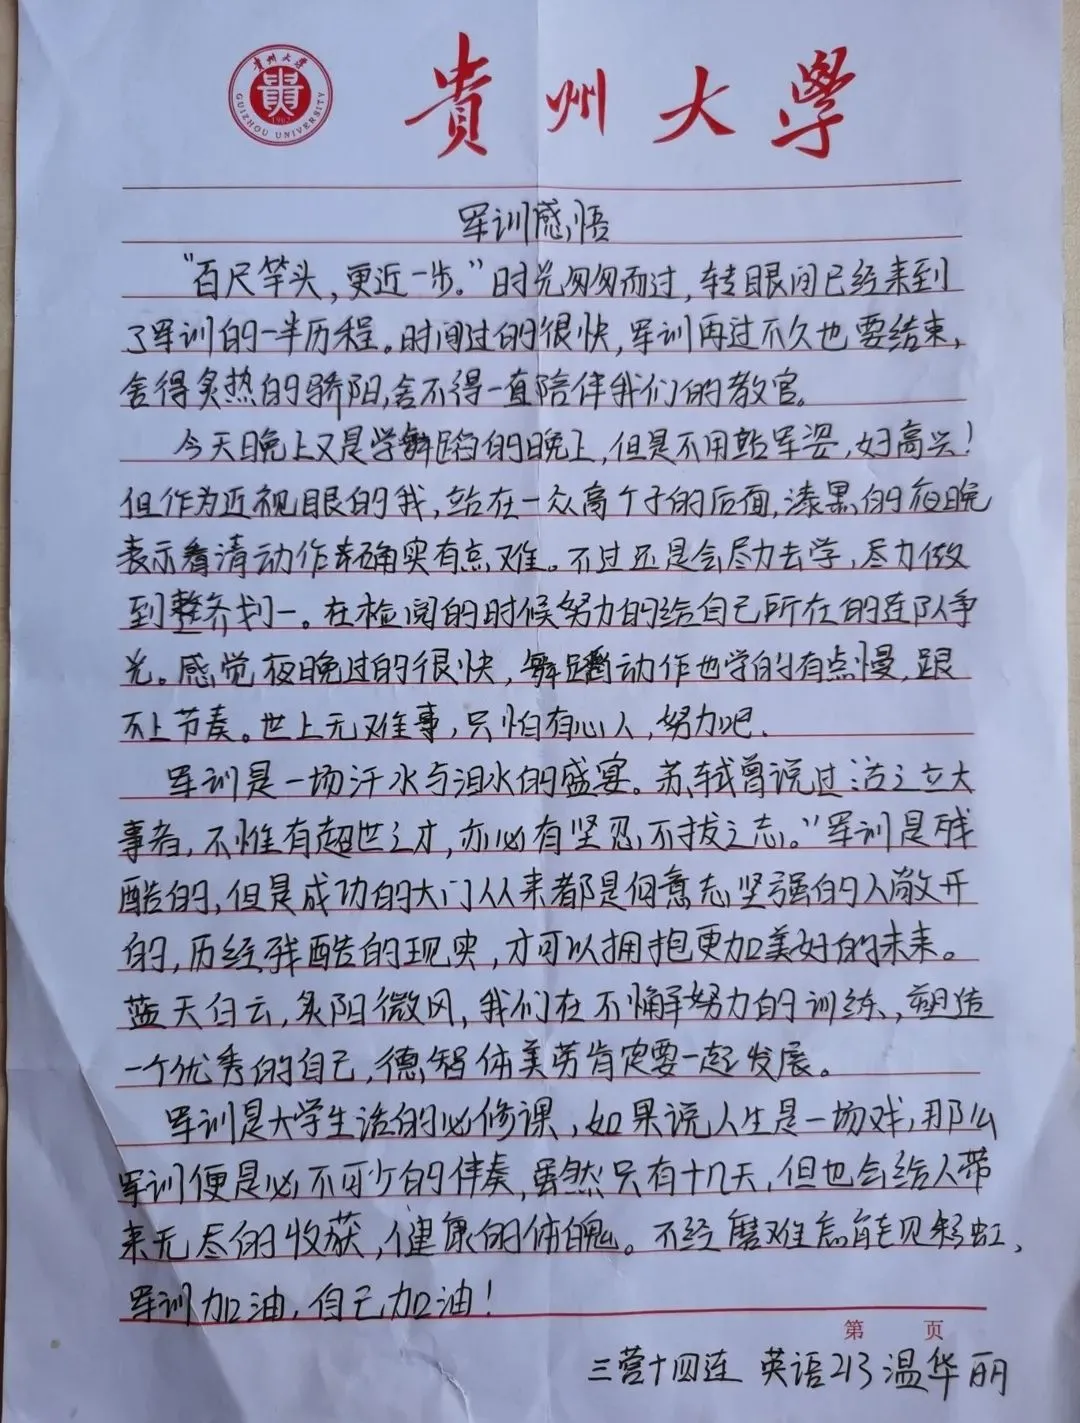 貴州大學
貴州大學
GUIZHOU UNIVERSITY
1902
军训感悟
“百尺竿头，更近一步。”时光匆匆而过，转眼间已经来到
了军训的一半历程。时间过的很快，军训再过不久也要结束，
舍得炙热的骄阳，舍不得一直陪伴我们的教官。
今天晚上又是学舞蹈的晚上，但是不用站军姿，好高兴！
但作为近视眼的我，站在一众高个子的后面，漆黑的夜晚
表示看清动作来确实有点难。不过还是会尽力去学，尽力做
到整齐划一。在检阅的时候努力的给自己所在的连队争
光。感觉夜晚过的很快，舞蹈动作也学的有点慢，跟
不上节奏。世上无难事，只怕有心人，努力吧.
军训是一场汗水与泪水的盛宴。苏轼曾说过：古之立大
事者，不惟有超世之才，亦必有坚忍不拔之志。”军训是残
酷的，但是成功的大门从来都是向意志坚强的人敞开
的，历经残酷的现实，才可以拥抱更加美好的未来。
蓝天白云，炙阳微风，我们在不懈努力的训练，塑造
一个优秀的自己，德智体美劳肯定要一起发展。
军训是大学生活的必修课，如果说人生是一场戏，那么
军训便是必不可少的伴奏，虽然只有十几天，但也会给人带
来无尽的收获，健康的体魄。不经磨难怎能见彩虹，
军训加油，自己加油！
第 页
三营十四连 英语213 温华丽